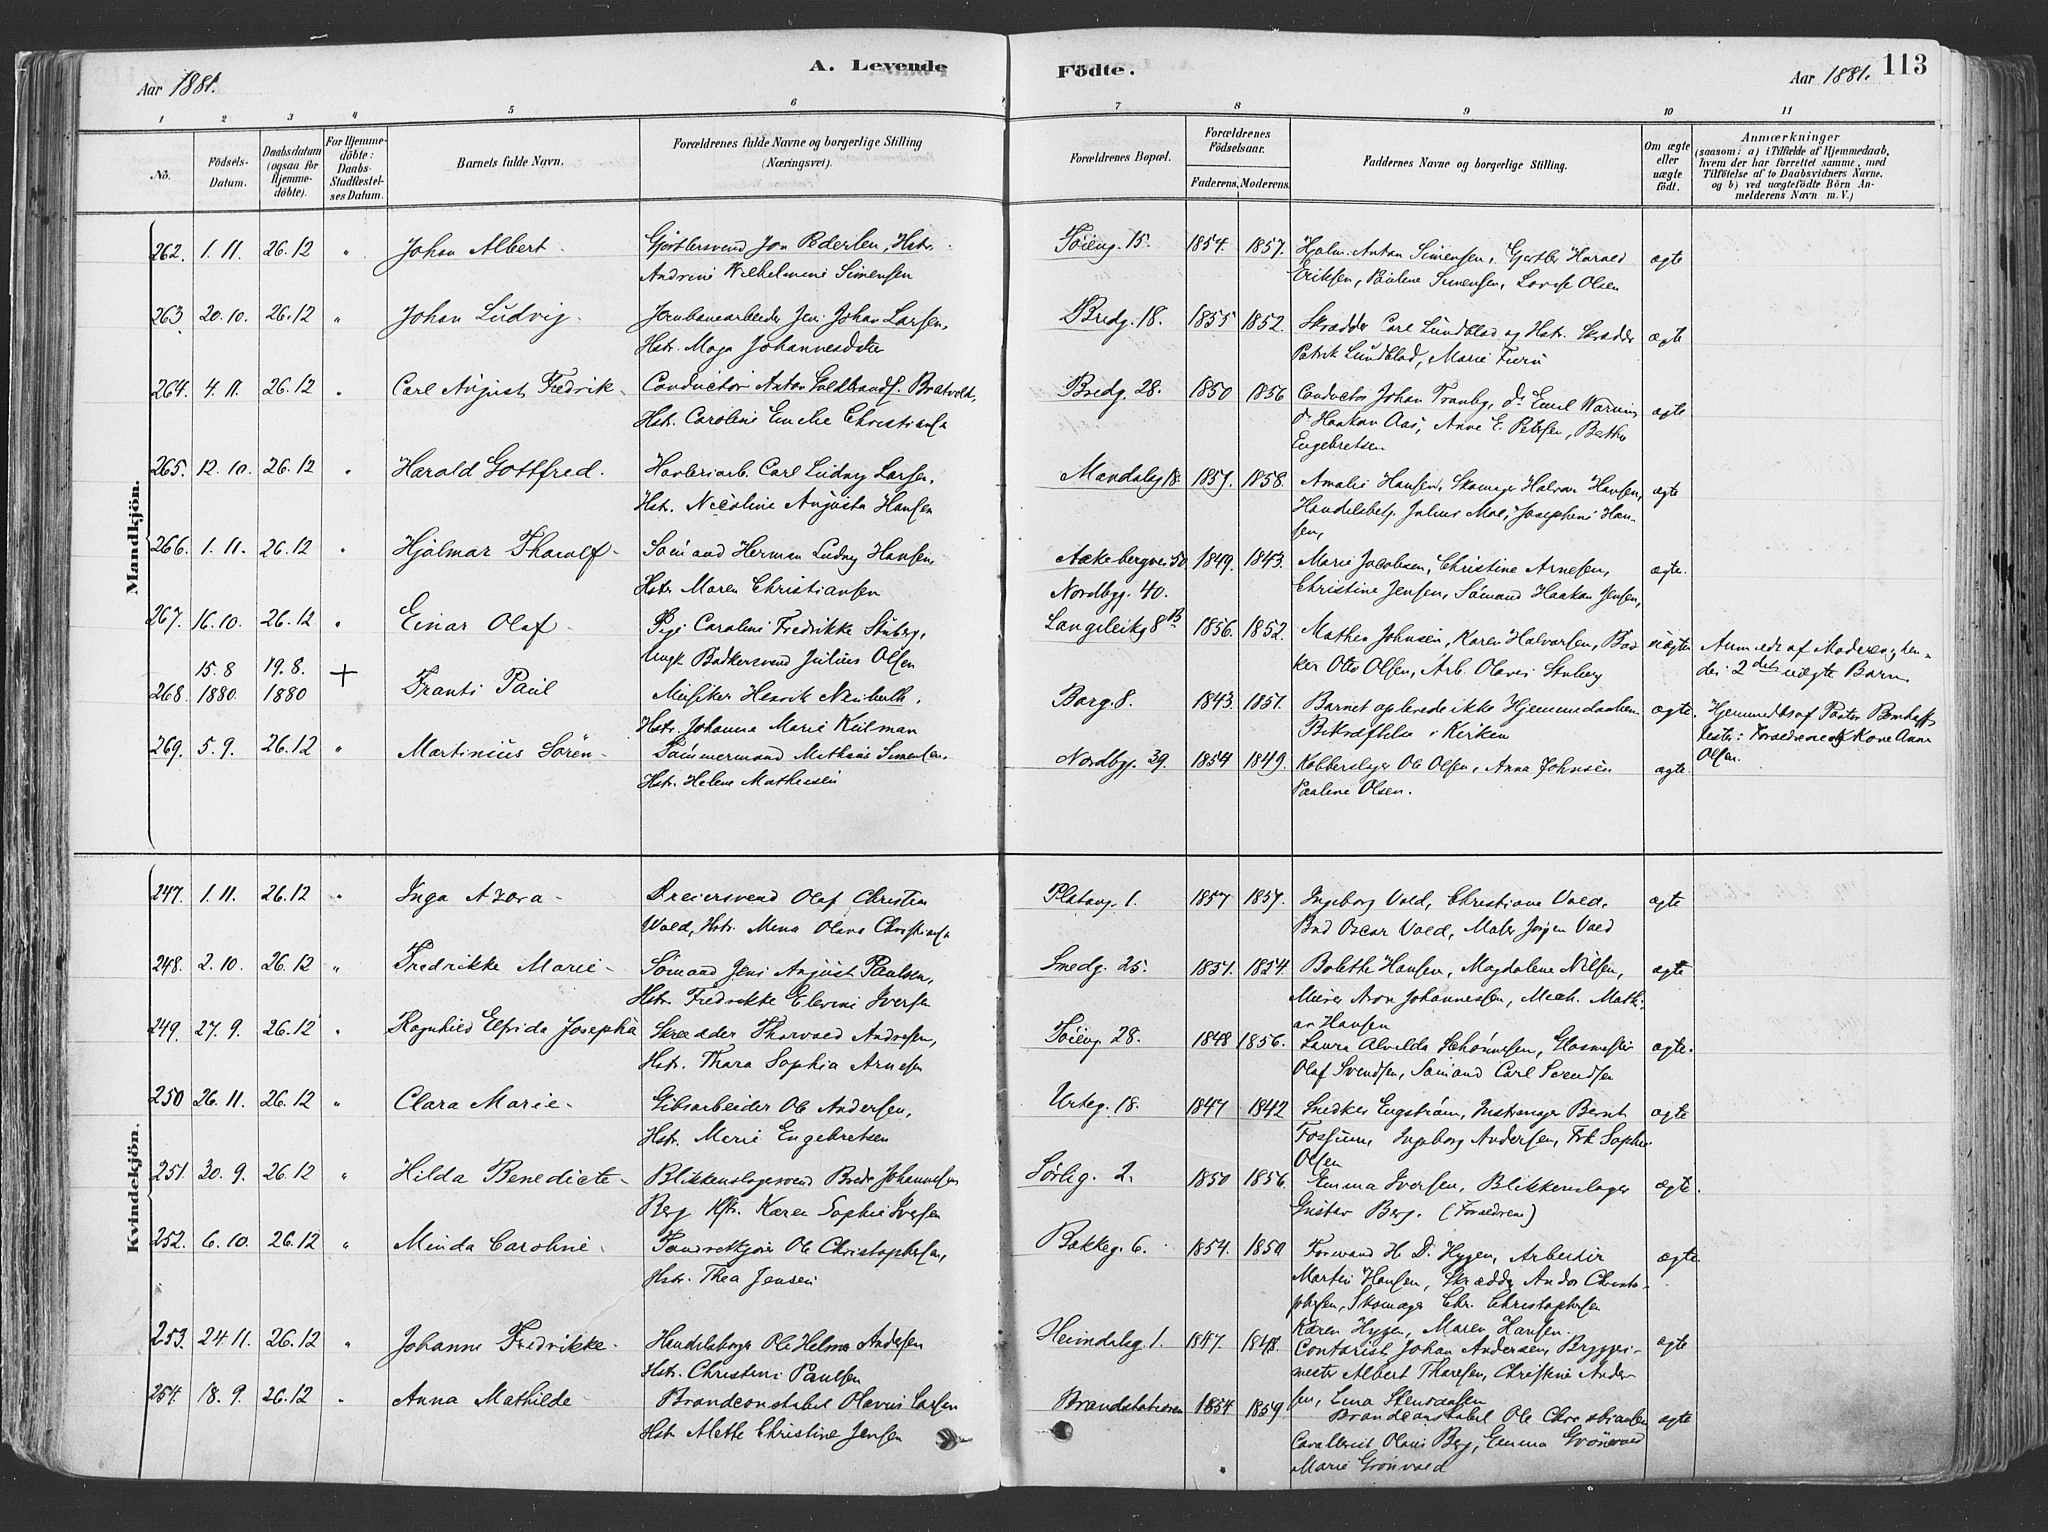 Aar 1881.
A. Levende
Födte.
Aar 1881.
113
1 2 3 4 5 6 7 8 9 10 11
No.
Födsels-Datum.
Daabsdatum (ogsaa for Hjemmedöbte).
For Hjemmedöbte: Daabs-Stadfæstelses Datum.
Barnets fulde Navn.
Forældrenes fulde Navne og borgerlige Stilling (Næringsvei).
Forældrenes Bopæl.
Forældrenes Födselsaar.
Faderens. Moderens.
Faddernes Navne og borgerlige Stilling.
Om ægte eller uægte födt.
Anmærkninger
(saasom: a) i Tilfælde af Hjemmedaab,
hvem der har forrettet samme, med
Tilföielse af to Daabsvidners Navne,
og b) ved uægtefödte Börn An-
melderens Navn m. V.)
Mandkjön.
262. 1. 11. 26. 12 " Johan Albert Gjörtlersvend Jon Pedersen, Hstr. Töieng. 15. 1854. 1857. Hjalm. Anton Simensen, Gjörtler Harald ægte
Andrine Wilhelmine Simensen Eriksen, Pauline Simensen, Lovise Olsen
263 20. 10. 26. 12 " Johan Ludvig. Jernbanearbeider Jens Johan Larsen, Bredg. 18. 1855 1852. Skrædder Carl Lundblad og Hstr. Skrædder ægte
Hstr. Maja Johannesdatter Patrik Lundblad, Marie Furu
264. 4. 11. 26. 12 " Carl August Fredrik Conductör Anton Guldbrands. Bratvold, Bredg. 28. 1850 1856 Conductör Johan Tranby, do Emil Warning ægte
Hstr. Caroline Emelie Christians. do Haakon Aas, Anne E. Petersen, Bertha
Engebretsen
265. 12. 10. 26. 12 " Harald Gottfred. Carl Ludvig Larsen, Mandalsg. 18. 1857. 1858. Amalie Hansen, Skomager Halvor Hansen, ægte
Hstr. Nicoline Augusta Hansen Handelsbetj. Julius Moe, Josephine Han-
sen,
266. 1. 11. 26. 12 " Hjalmar Tharulf Sömand Herman Ludvig Hansen, Aakebergvei 50 1849. 1843. Marie Jacobsen, Christine Arnesen, ægte.
Hstr. Maren Christiansen Nordbyg. 40. Christine Jensen, Sömand Haakon Jensen,
267. 16. 10. 26. 12 " Einar Olaf Pige Caroline Fredrikke Stuberg, Langleikg 8 B 1856. 1852. Mathea Johnsen, Karen Halvorsen, Böd- uægte Anmeldt af Moderen, hen-
Ungk. Bödkersvend Julius Olsen ker Otto Olsen, Arb. Olaves Stuberg des 2det uægte Barn
268. 15. 8 1880. 19. 8. 1880 + Frants Paul Musiker Henrik Neuberth. Borg. 8. 1843. 1851. Barnet oplevede ikke Hjemmedaaben ægte. Hjemmedöbt af Pastor
Hstr. Johanna Marie Kulman Bekræftelse i Kirken Forældrene og Kone Anne
Olsen.
269. 5. 9. 26. 12 " Martinius Sören Tömmermand Mathias Simensen, Nordbyg. 39. 1854 1849. Kobberslager Ole Olsen, Anna Johnsen ægte.
Hstr. Helene Mathiesen Pauline Olsen.
Kvindekjön.
247. 1. 11. 26. 12 " Inga Azora Dreiersvend Olaf Christian Platoug. 1. 1857 1857. Ingeborg Vold, Christiane Vold. ægte
Wold, Hstr. Mena Olava Christians. Oscar Vold, Maler Jörgen Vold
248. 2. 10. 26. 12 " Fredrikke Marie Sömand Jens August Paulsen, Smedg. 25. 1851. 1854. Bolette Hansen, Magdalene Nilsen, ægte
Hstr. Fredrikke Elevine Iversen Murer Aron Johannessen, Mech. Mathi-
as Hansen
249. 27. 9. 26. 12 " Ragnhild Elfrida Josepha Skrædder Thorvald Andresen, Töieng. 28. 1848 1856. Laura Alvilda Schönnesen, Glasmester ægte.
Hstr. Thora Sophia Arnesen Olaf Svendsen, Sömand Carl Svendsen
250 26. 11. 26. 12 " Clara Marie Gibsarbeider Ole Andersen, Urteg. 18. 1847 1842 Snedker Engström, Instrmager Bernt ægte
Hstr. Marie Engebretsen Fossum, Ingeborg Andersen, Frk Sophie
Olsen
251. 30. 9. 26. 12 " Hilda Benedicte Blikkenslagersvend Brede Johannesen Sörlig. 2. 1850 1856. Emma Iversen, Blikkenslager ægte.
Berg Hstr. Karen Sophie Iversen Gustav Berg. (Forældrene)
252. 6. 10. 26. 12 " Minda Caroline Ole Christophersen, Bakkeg. 6. 1854. 1850 Formand H. D. Hygen, Arbeider ægte.
Hstr. Thea Jensen Martin Hansen, Skrædder Andor Christo-
phersen, Skomager Chr. Christophersen
Karen Hygen, Maren Hansen.
253. 24 11. 26. 12 " Johanne Fredrikke Handelsborger Ole Helmer Andersen Heimdalsg. 1. 1847. 1848. Contorist Johan Andersen, Brygge- ægte
Hstr. Christine Paulsen mester Albert Thoresen, Christine Ander-
sen, Lina Stensaasen
254. 18. 9. 26. 12 " Anna Mathilde Brandconstabel Olavus Larsen Brandstationen 1854 1859. Brandconstabel Ole Christiansen ægte
Hstr Mette Christine Jensen Cavallerist Olaus Berg, Emma Grönvold
Marie Grönvold